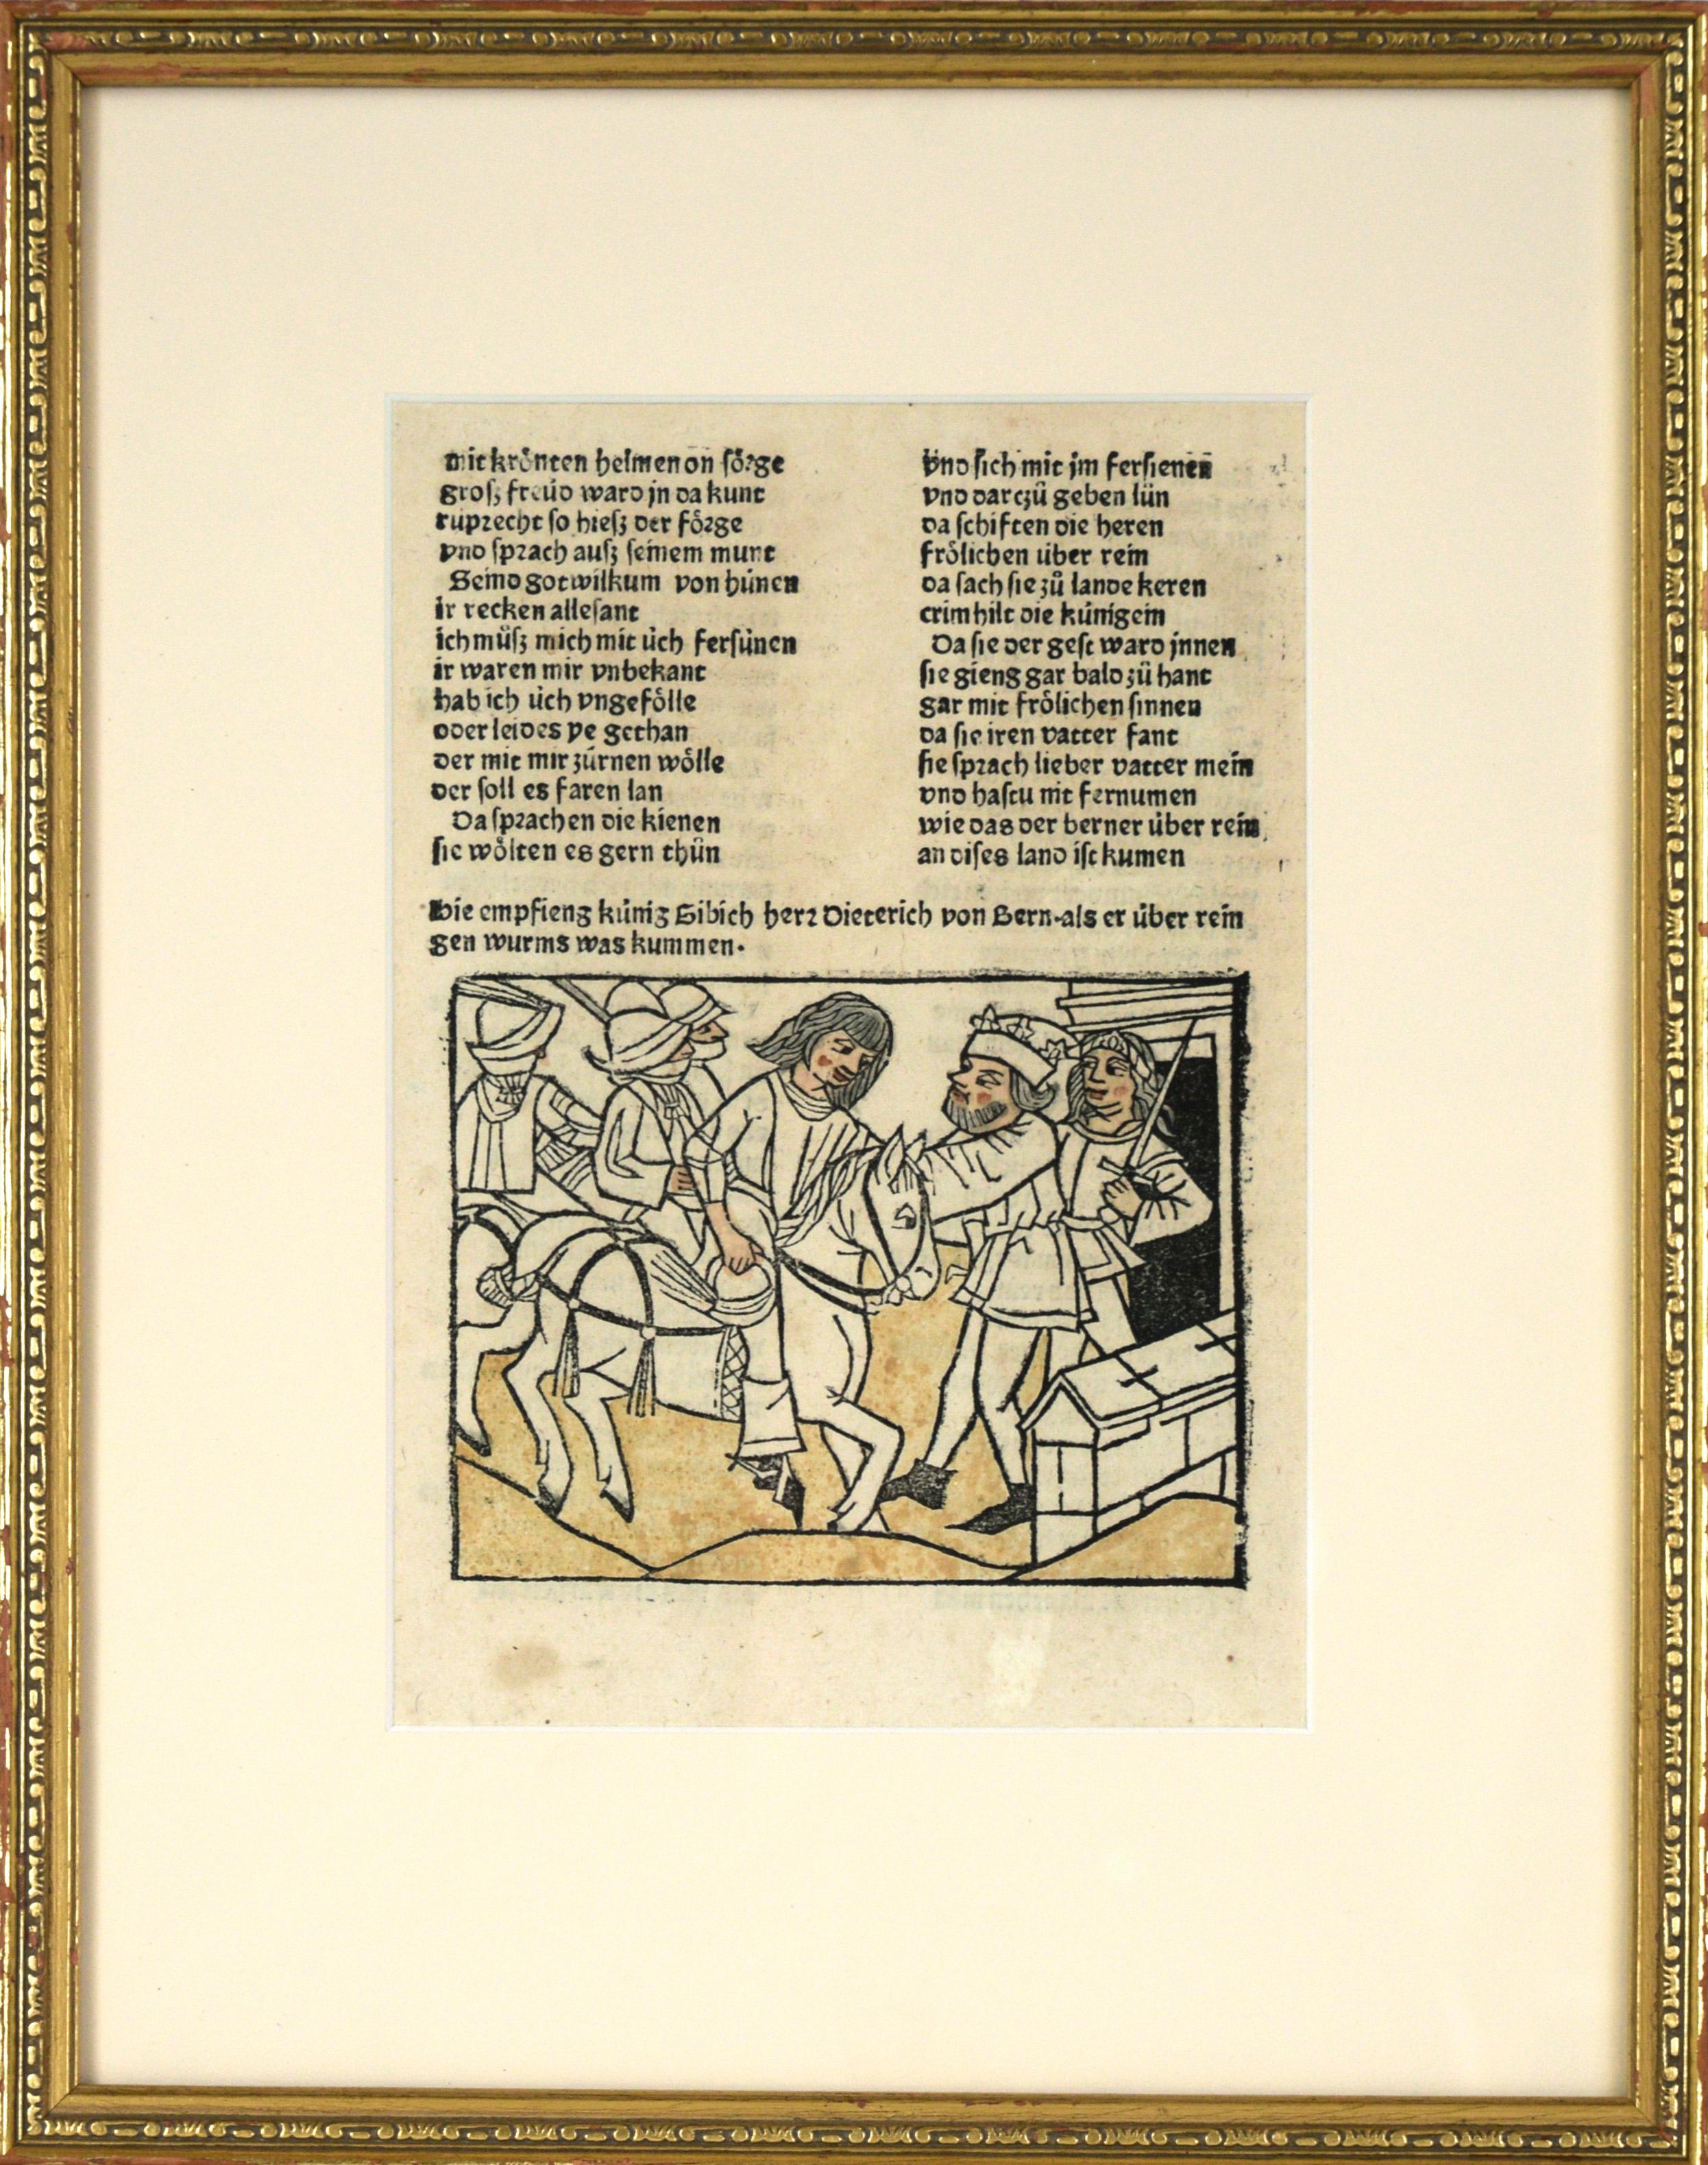 mit krönten helmen on sörge
gros̈z freüd ward jn da kunt
ruprecht so hiesz der förge
vnd sprach ausz seinem munt
Seind gotwilkum von hünen
ir recken allesant
ich müsz mich mit üch fersünen
ir waren mir vnbekant
hab ich üch vngefölle
oder leides ye gethan
der mit mir zürnen wölle
der soll es faren lan
Da sprachen die kienen
sie wölten es gern thün
Vnd sich mit jm fersienen
vnd darczů geben lün
da schiften die heren
frölichen über rein
da sach sie zů lande keren
crimhilt die künigein
Da sie der gest ward jnnen
sie gieng gar bald zů hant
gar mit frölichen sinnen
da sie iren vatter fant
sie sprach lieber vatter mein
vnd hastu nit fernumen
wie das der berner über rein
an dises land ist kumen
Hie empfieng künig Gibich herr Dieterich von Bern·als er über rein
gen wurms was kummen·